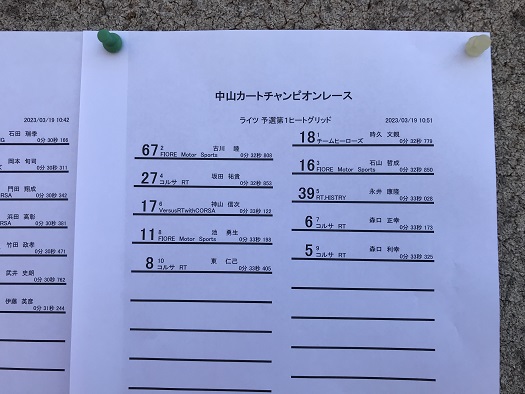 2023/03/19 10:42
石田 瑞幸
0分 30秒 166
岡本 旬司
0分 30秒 311
門田 翔成
0分 30秒 342
浜田 高彰
0分 30秒 381
竹田 政孝
0分 30秒 471
武井 史朗
0分 30秒 762
伊藤 英彦
0分 31秒 244
中山カートチャンピオンレース
ライツ 予選第1ヒートグリッド
2023/03/19 10:51
18 1 時久 文親
チームヒーローズ 0分 32秒 779
67 2 古川 睦
FIORE Motor Sports 0分 32秒 808
16 3 石山 哲成
FIORE Motor Sports 0分 32秒 850
27 4 坂田 祐貴
コルサ RT 0分 32秒 853
39 5 永井 康隆
RT.HISTRY 0分 33秒 026
17 6 神山 信次
VersusRTwithCORSA 0分 33秒 122
6 7 森口 正幸
コルサ RT 0分 33秒 173
11 8 池 勇生
FIORE Motor Sports 0分 33秒 198
5 9 森口 利幸
コルサ RT 0分 33秒 325
8 10 東 仁己
コルサ RT 0分 33秒 405